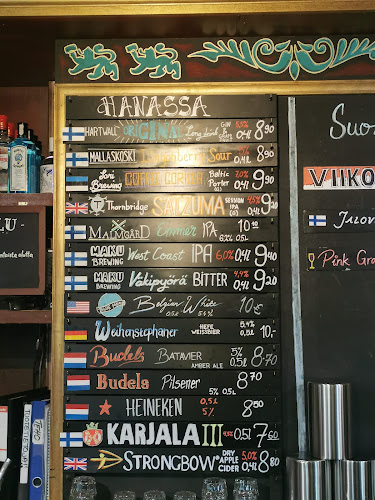 HANASSA
HARTWALL ORIGINAL Long Drink GIN 5,5% 0,4l 8,90
MALLASKOSKI Sour 0,4l 8,90
Lori Brewing Baltic Porter 7,0% 0,4l 9,90
Thornbridge SATZUMA SESSION IPA 4,5% 0,4l 9,90
MALMGÅRD Emmer IPA 10,40
MAKU BREWING West Coast IPA 6,0% 0,4l 9,40
MAKU BREWING Väkipyörä BITTER 4,4% 0,4l 9,20
Belgian White 0,5l 5,4% 10,-€
Weihenstephaner HEFE WEISSBIER 5,4% 0,5l 10,-
Budels BATAVIER AMBER ALE 5% 0,5l 8,70
Budels Pilsener 5% 0,5l 8,70
HEINEKEN 0,5l 5% 8,50
KARJALA III 0,5l 7,60
STRONGBOW DRY APPLE CIDER 5% 0,4l 8,80
LU -
Suo
VIIKO
Jalov
Pink Gra